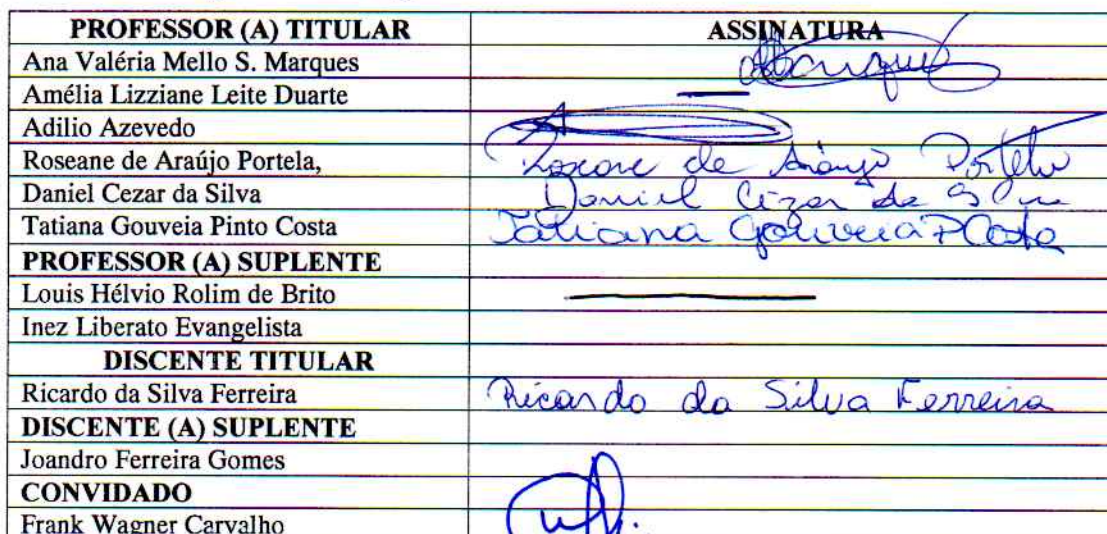 PROFESSOR (A) TITULAR ASSINATURA
Ana Valéria Mello S. Marques
Amélia Lizziane Leite Duarte
Adilio Azevedo
Roseane de Araújo Portela, Roseane de Araújo Portela
Daniel Cezar da Silva Daniel Cezar da Silva
Tatiana Gouveia Pinto Costa Tatiana Gouveia P Costa
PROFESSOR (A) SUPLENTE
Louis Hélvio Rolim de Brito
Inez Liberato Evangelista
DISCENTE TITULAR
Ricardo da Silva Ferreira Ricardo da Silva Ferreira
DISCENTE (A) SUPLENTE
Joandro Ferreira Gomes
CONVIDADO
Frank Wagner Carvalho